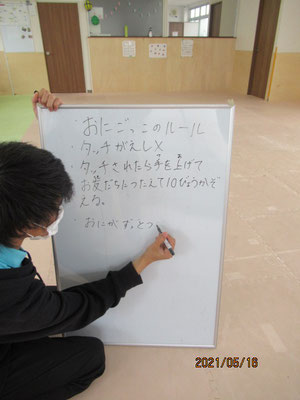 ・おにごっこのルール
・タッチがえし×
・タッチされたら手を上げて
お友だちにつたえて10びょうかぞ
える。
・おにがずっとつ
2021/05/16